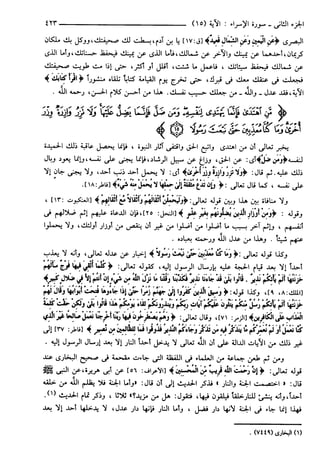 الجزء الثاني - سورة الإسراء : الآية (١٥) ٤٢٣
البصري ﴿عَنِ الْيَمِينِ وَعَنِ الشِّمَالِ قَعِيدٌ﴾ [ق:١٧] يا بن آدم، بسطت لك صحيفتك، ووكل بك ملكان
كريمان، أحدهما عن يمينك والآخر عن شمالك، فأما الذي عن يمينك فيحفظ حسناتك، وأما الذي
عن شمالك فيحفظ سيئاتك ، فاعمل ما شئت، أقلل أو أكثر، حتى إذا مت طويت صحيفتك
فجعلت في عنقك معك في قبرك، حتى تخرج يوم القيامة كتاباً تلقاه منشوراً ﴿اقْرَأْ كِتَابَكَ﴾
الآية، فقد عدل - والله - من جعلك حسيب نفسك. هذا من أحسن كلام الحسن، رحمه الله .
﴿مَّنِ اهْتَدَىٰ فَإِنَّمَا يَهْتَدِي لِنَفْسِهِ وَمَن ضَلَّ فَإِنَّمَا يَضِلُّ عَلَيْهَا وَلَا تَزِرُ وَازِرَةٌ وِزْرَ
أُخْرَىٰ وَمَا كُنَّا مُعَذِّبِينَ حَتَّىٰ نَبْعَثَ رَسُولًا ﴾
يخبر تعالى أن من اهتدى واتبع الحق واقتفى آثار النبوة ، فإنما يحصل عاقبة ذلك الحميدة
لنفسه ﴿وَمَن ضَلَّ﴾ أي: عن الحق، وزاغ عن سبيل الرشاد، فإنما يجني على نفسه، وإنما يعود وبال
ذلك عليه. ثم قال: ﴿وَلَا تَزِرُ وَازِرَةٌ وِزْرَ أُخْرَىٰ﴾ أي: لا يحمل أحد ذنب أحد، ولا يجني جان إلا
على نفسه ، كما قال تعالى : ﴿وَإِن تَدْعُ مُثْقَلَةٌ إِلَىٰ حِمْلِهَا لَا يُحْمَلْ مِنْهُ شَيْءٌ﴾ [فاطر: ١٨].
ولا منافاة بين هذا وبين قوله تعالى: ﴿وَلَيَحْمِلُنَّ أَثْقَالَهُمْ وَأَثْقَالًا مَّعَ أَثْقَالِهِمْ﴾ [العنكبوت: ١٣] ،
وقوله : ﴿وَمِنْ أَوْزَارِ الَّذِينَ يُضِلُّونَهُم بِغَيْرِ عِلْمٍ﴾ [النحل: ٢٥]، فإن الدعاة عليهم إثم ضلالهم في
أنفسهم ، وإثم آخر بسبب ما أضلوا من أضلوا من غير أن ينقص من أوزار أولئك، ولا يحملوا
عنهم شيئاً . وهذا من عدل الله ورحمته بعباده .
وكذا قوله تعالى: ﴿وَمَا كُنَّا مُعَذِّبِينَ حَتَّىٰ نَبْعَثَ رَسُولًا﴾ إخبار عن عدله تعالى، وأنه لا يعذب
أحداً إلا بعد قيام الحجة عليه بإرسال الرسول إليه، كقوله تعالى: ﴿كُلَّمَا أُلْقِيَ فِيهَا فَوْجٌ سَأَلَهُمْ
خَزَنَتُهَا أَلَمْ يَأْتِكُمْ نَذِيرٌ . قَالُوا بَلَىٰ قَدْ جَاءَنَا نَذِيرٌ فَكَذَّبْنَا وَقُلْنَا مَا نَزَّلَ اللَّهُ مِن شَيْءٍ إِنْ أَنتُمْ إِلَّا فِي ضَلَالٍ كَبِيرٍ﴾
[الملك: ٨، ٩]، وكذا قوله: ﴿وَسِيقَ الَّذِينَ كَفَرُوا إِلَىٰ جَهَنَّمَ زُمَرًا حَتَّىٰ إِذَا جَاءُوهَا فُتِحَتْ أَبْوَابُهَا وَقَالَ لَهُمْ
خَزَنَتُهَا أَلَمْ يَأْتِكُمْ رُسُلٌ مِّنكُمْ يَتْلُونَ عَلَيْكُمْ آيَاتِ رَبِّكُمْ وَيُنذِرُونَكُمْ لِقَاءَ يَوْمِكُمْ هَٰذَا قَالُوا بَلَىٰ وَلَٰكِنْ حَقَّتْ كَلِمَةُ
الْعَذَابِ عَلَى الْكَافِرِينَ﴾ [الزمر: ٧١]، وقال تعالى: ﴿وَهُمْ يَصْطَرِخُونَ فِيهَا رَبَّنَا أَخْرِجْنَا نَعْمَلْ صَالِحًا غَيْرَ الَّذِي
كُنَّا نَعْمَلُ أَوَلَمْ نُعَمِّرْكُم مَّا يَتَذَكَّرُ فِيهِ مَن تَذَكَّرَ وَجَاءَكُمُ النَّذِيرُ فَذُوقُوا فَمَا لِلظَّالِمِينَ مِن نَّصِيرٍ﴾ [فاطر: ٣٧] إلى
غير ذلك من الآيات الدالة على أن الله تعالى لا يدخل أحداً النار إلا بعد إرسال الرسول إليه .
ومن ثم طعن جماعة من العلماء في اللفظة التي جاءت مقحمة في صحيح البخاري عند
قوله تعالى: ﴿إِنَّ رَحْمَتَ اللَّهِ قَرِيبٌ مِّنَ الْمُحْسِنِينَ﴾ [الأعراف: ٥٦] عن أبي هريرة، عن النبي ﷺ
قال: «اختصمت الجنة والنار» فذكر الحديث إلى أن قال: «وأما الجنة فلا يظلم الله من خلقه
أحداً، وأنه ينشئ للنار خلقاً فيلقون فيها، فتقول: هل من مزيد؟» ثلاثا ، وذكر تمام الحديث (١).
فهذا إنما جاء في الجنة لأنها دار فضل ، وأما النار فإنها دار عدل، لا يدخلها أحد إلا بعد
(١) البخاري (٧٤٤٩) .